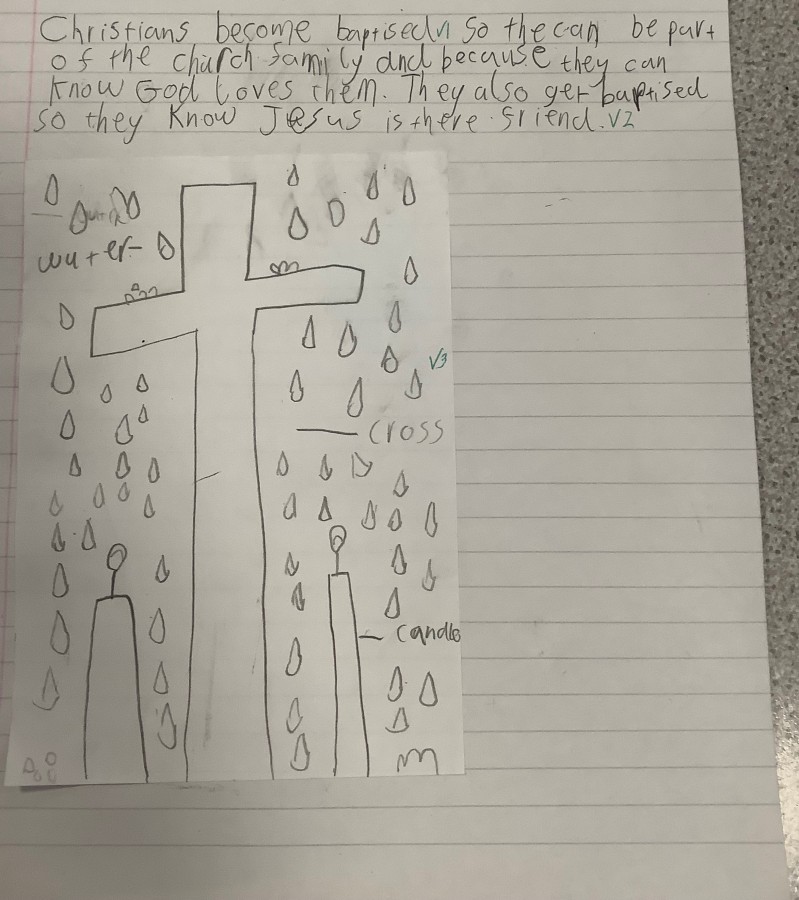 Christians become baptised so the can be part
of the church family and because they can
know God loves them. They also get baptised
so they know Jesus is there friend. V2
water
V3
cross
candle